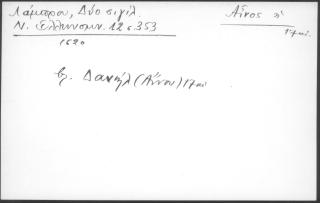 Λάμπρου, Δύο σιγίλ.
Ν. Ελληνομν. 12 σ. 353
1620
Αἶνος
17 αἰ.
βλ. Δανιήλ (Αἴνου) 17 αἰ